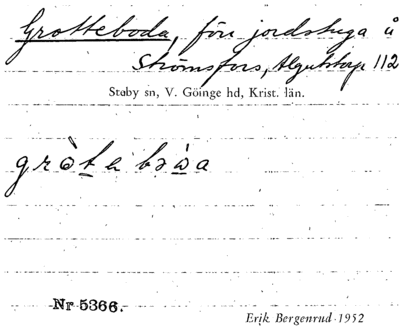 Grotteboda, förr jordstuga å
Strömsfors, Algutstorp 112
Stoby sn, V. Göinge hd, Krist. län.
Nr 5366.
Erik Bergenrud 1952